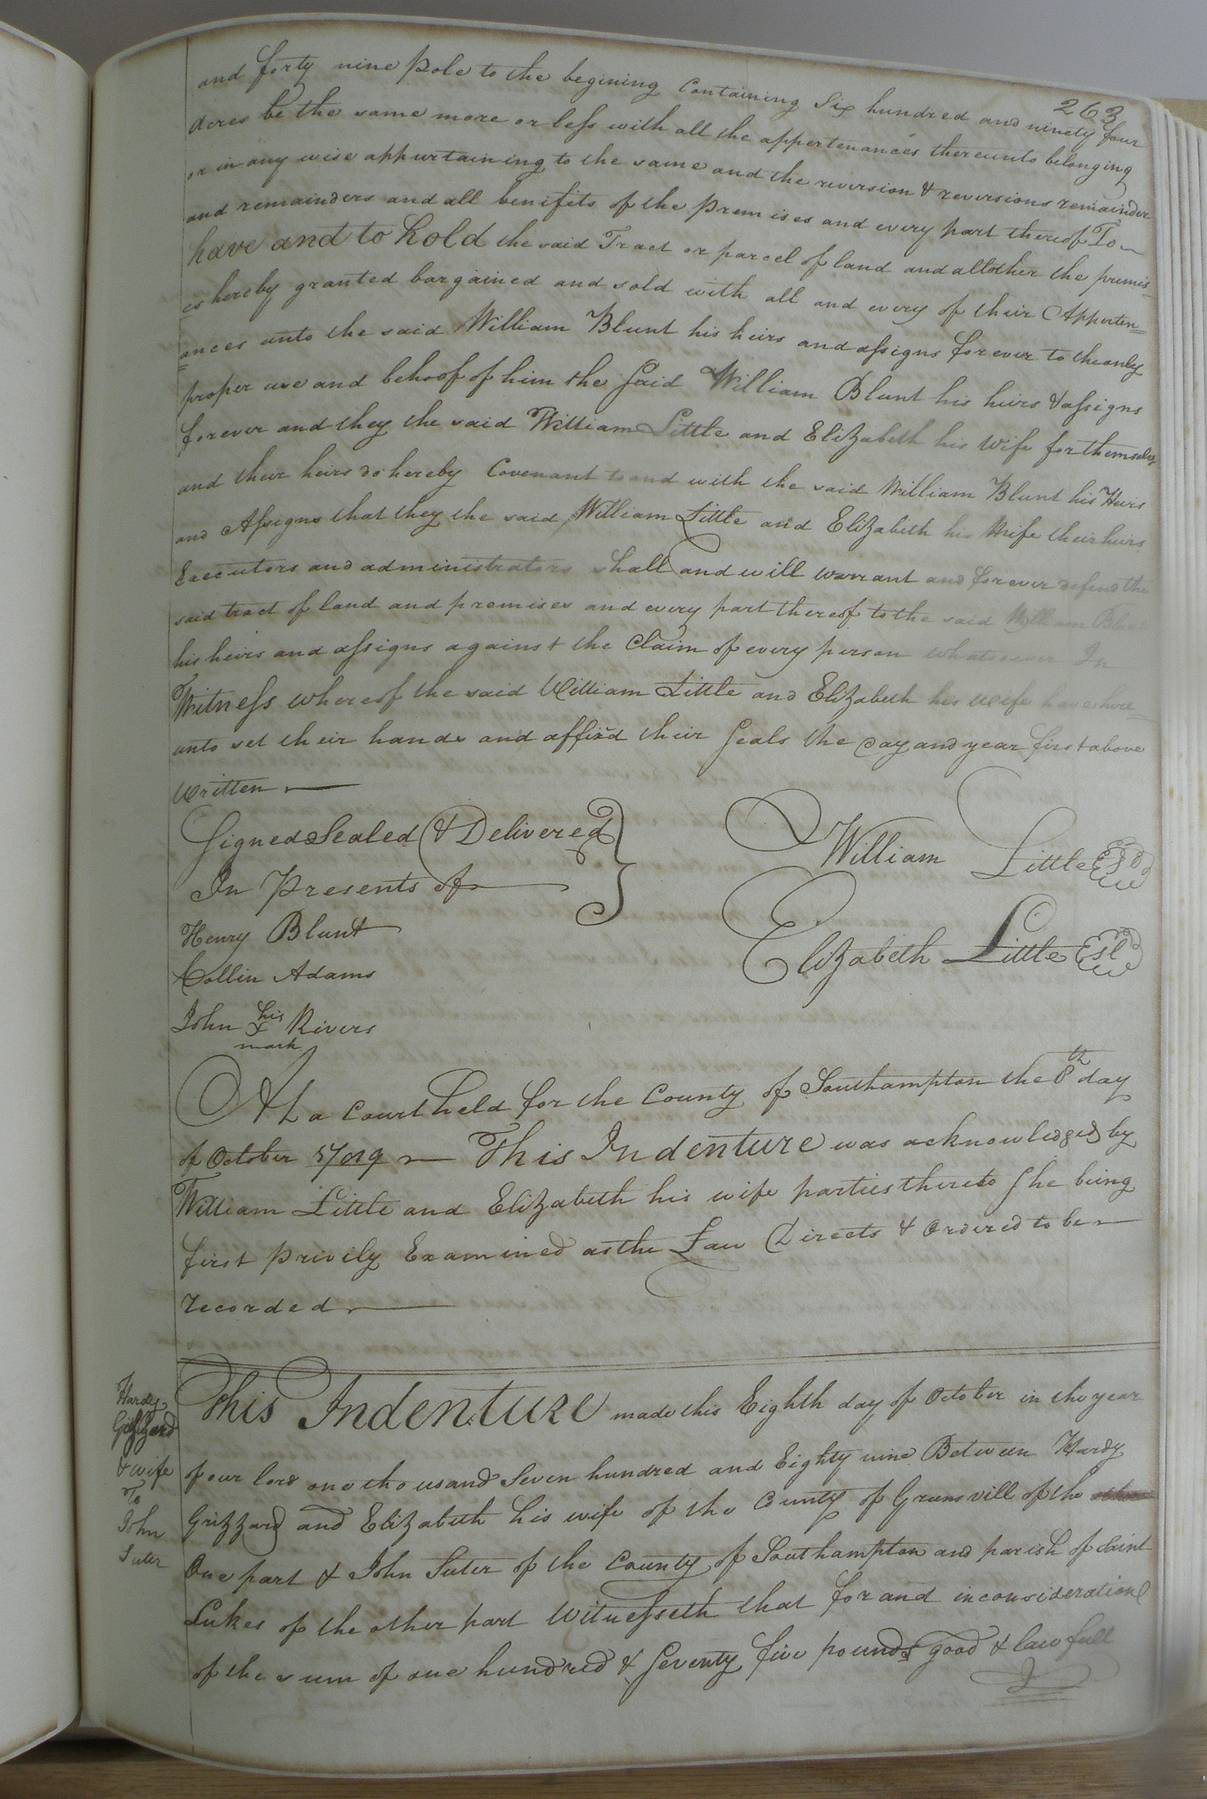 263
and forty nine pole to the begining Containing Six hundred and ninety four
Acres be the same more or less with all the appertenances thereunto belonging
or in any wise appurtaining to the same and the reversion & reversions remainder
and remainders and all benifits of the premises and every part thereof To
have and to hold the said Tract or parcel of land and all other the premis-
es hereby granted bargained and sold with all and every of their Apperten=
=ances unto the said William Blunt his heirs and assigns forever to the only
proper use and behoof of him the said William Blunt his heirs & assigns
forever and they the said William Little and Elizabeth his Wife for themselves
and their heirs do hereby Covenant to and with the said William Blunt his Heirs
and Assigns that they the said William Little and Elizabeth his Wife their heirs
Executors and administrators shall and will warrant and forever defend the
said tract of land and premises and every part thereof to the said William Blunt
his heirs and assigns against the Claim of every person whatsoever In
Witness whereof the said William Little and Elizabeth his wife have here=
unto set their hands and affixd their Seals the day and year first above
Written
Signed Sealed & Delivered
In Presents of
William Little
Henry Blunt
Elizabeth Little
Collin Adams
John his x mark Rivers
At a Court Held for the County of Southampton the 8th day
of October This Indenture was acknowledged by
William Little and Elizabeth his wife parties thereto She being
first privily Examined as the Law Directs & Ordered to be
recorded
Hardy
Grizzard
& wife
To
John
Suter
This Indenture made this Eighth day of October in the year
of our lord one thousand Seven hundred and Eighty nine Between Hardy
Grizzard and Elizabeth his wife of the County of Greensvill of the
One part & John Suter of the County of Southampton and parish of Saint
Lukes of the other part Witnesseth that for and in consideration
of the sum of one hundred & Seventy five pounds good & lawfull